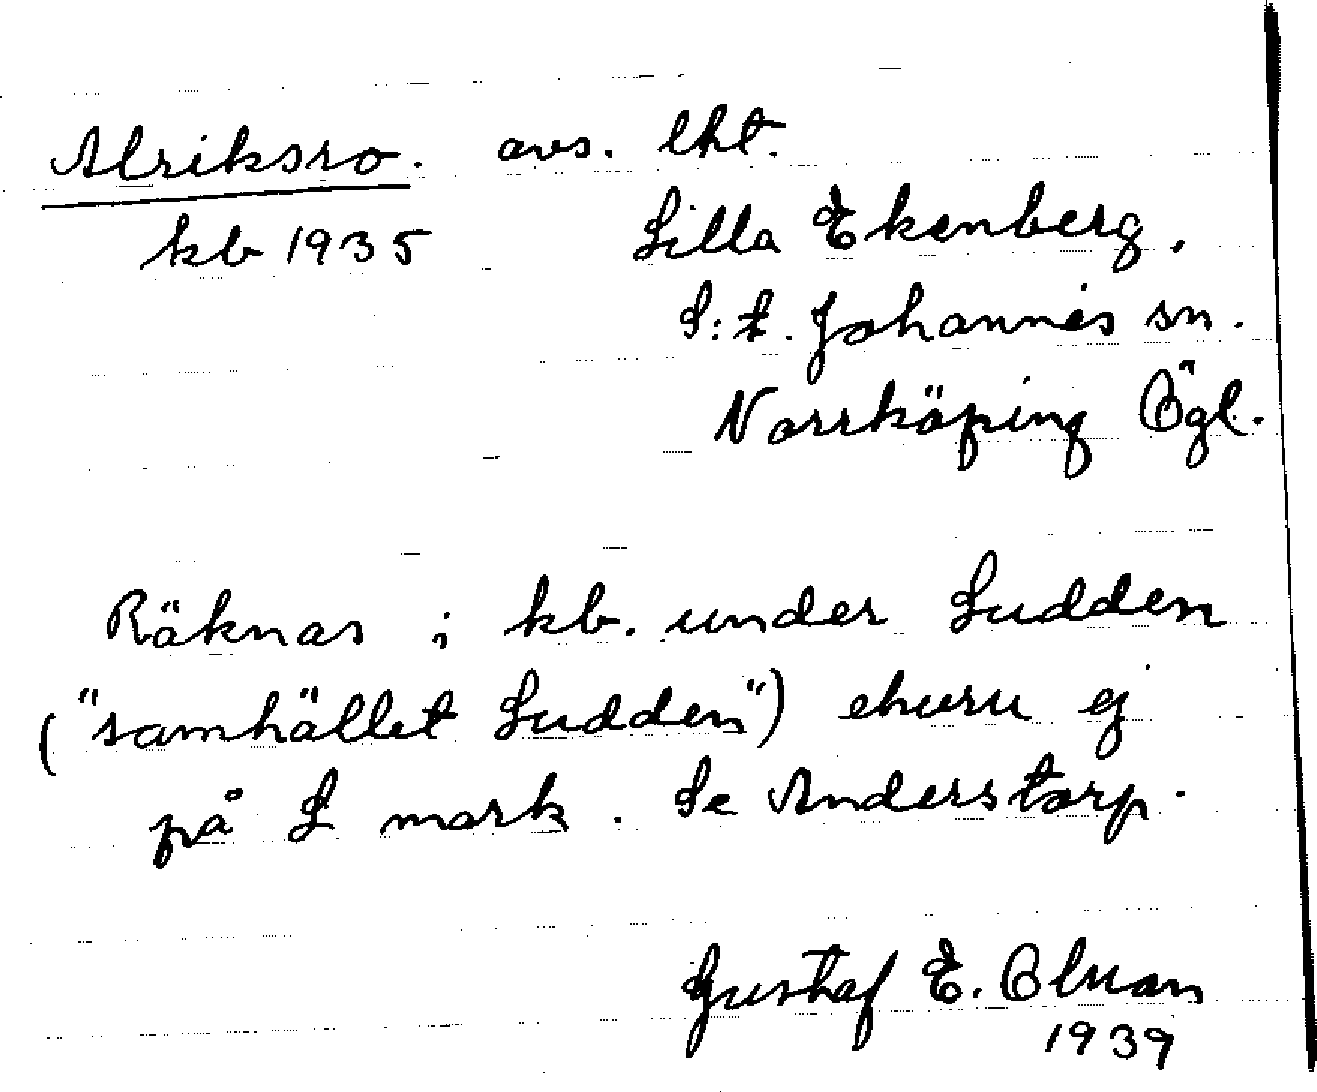 Alriksro. avs. lht.
kb 1935 Lilla Ekenberg,
S:t. Johannes sn.
Norrköping Ögl.
Räknas i kb. under Sudden
("samhället Sudden") ehuru ej
på S mark. Se Anderstorp.
Gustaf E. Olman
1939